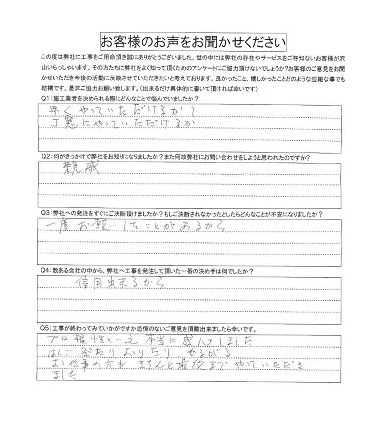 お客様のお声をお聞かせください
この度は弊社に工事をご用命頂き誠にありがとうございました。世の中には弊社の存在やサービスをご存知ないお客様が沢
山いらっしゃいます。その方たちに弊社をよく知って頂くためのアンケートにご協力頂けないでしょうか？お客様のご意見をお聞
かせいただき今後の活動に反映させていただきたいと考えております。良かったこと、嬉しかったことどのような些細な事でも
結構です。是非ご協力お願い致します。（出来るだけ具体的に書いて頂ければ幸いです）
Q1：施工業者を決められる際にどんなことで悩んでいましたか？
早くやっていただけるか？
丁寧にやっていただけるか
Q2：何がきっかけで弊社をお知りになりましたか？また何故弊社にお問い合わせをしようと思われたのですか？
親戚
Q3：弊社への発注をすぐにご決断頂けましたか？もしご決断されなかったとしたらどんなことが不安になりましたか？
一度お願いしたことがあるから
Q4：数ある会社の中から、弊社へ工事を発注して頂いた一番の決め手は何でしたか？
信用出来るから
Q5：工事が終わってみていかがですか忌憚のないご意見を頂戴出来ましたら幸いです。
プロ根性と 本当に しました
のぼったりおりたり
お仕事の方も きちんと最後までやっていただき
ました